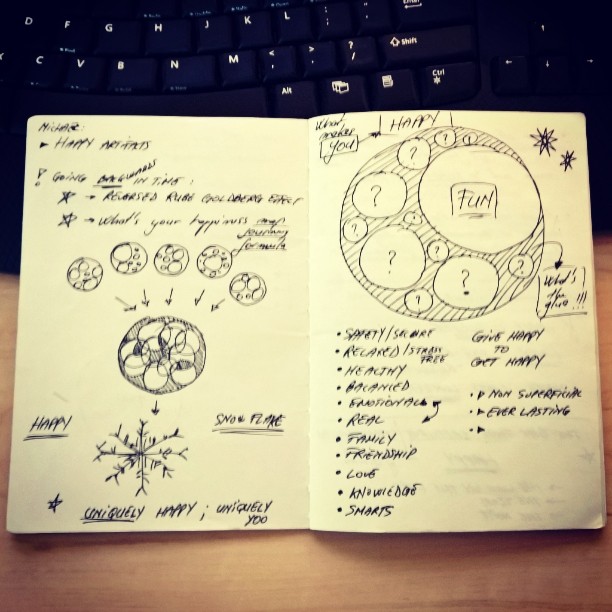 D F G H J K L : ; " ' Enter
C V B N M < , > . ? / Shift
Alt Ctrl
MICHAEL:
► HAPPY ARTIFACTS
! GOING BACKWARDS IN TIME:
→ REVERSED RUBE GOLDBERG EFFECT
→ What's your happiness map
journey
formula
HAPPY
SNOWFLAKE
UNIQUELY HAPPY ; UNIQUELY
YOU
What makes
YOU
HAPPY
? ? ?
?
FUN
? ?
? ? ? ?
?
What's
the
glue!!!
• SAFETY/SECURE
• RELAXED/STRESS
FREE
• HEALTHY
• BALANCED
• EMOTIONAL
• REAL
• FAMILY
• FRIENDSHIP
• LOVE
• KNOWLEDGE
• SMARTS
GIVE HAPPY
TO
GET HAPPY
• ► NON SUPERFICIAL
• ► EVER LASTING
• ►